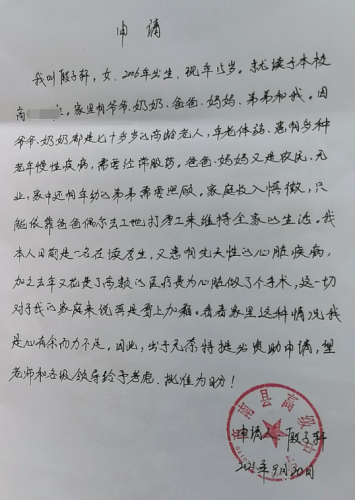 申请
我叫殷子轩，女，2006年出生，现年15岁。就读于本校
高 家里有爷爷、奶奶、爸爸、妈妈、弟弟和我。因
爷爷、奶奶都是七十多岁的高龄老人，年老体弱，患有多种
老年慢性疾病，需要经常服药。爸爸、妈妈又是农民，无
业，家中还有年幼的弟弟需要照顾。家庭收入微薄，只
能依靠爸爸偶尔去工地打零工来维持全家的生活。我
本人目前是一名在读学生，又患有先天性的心脏疾病，
加之去年又花费了高额的医疗费为心脏做了个手术，这一切
对于我的家庭来说更是雪上加霜。看着家里这种情况我
是心有余而力不足，因此，出于无奈特提出资助申请，望
老师和各级领导给予考虑、批准为盼！
县高级中
申请人：殷子轩
2021年9月30日